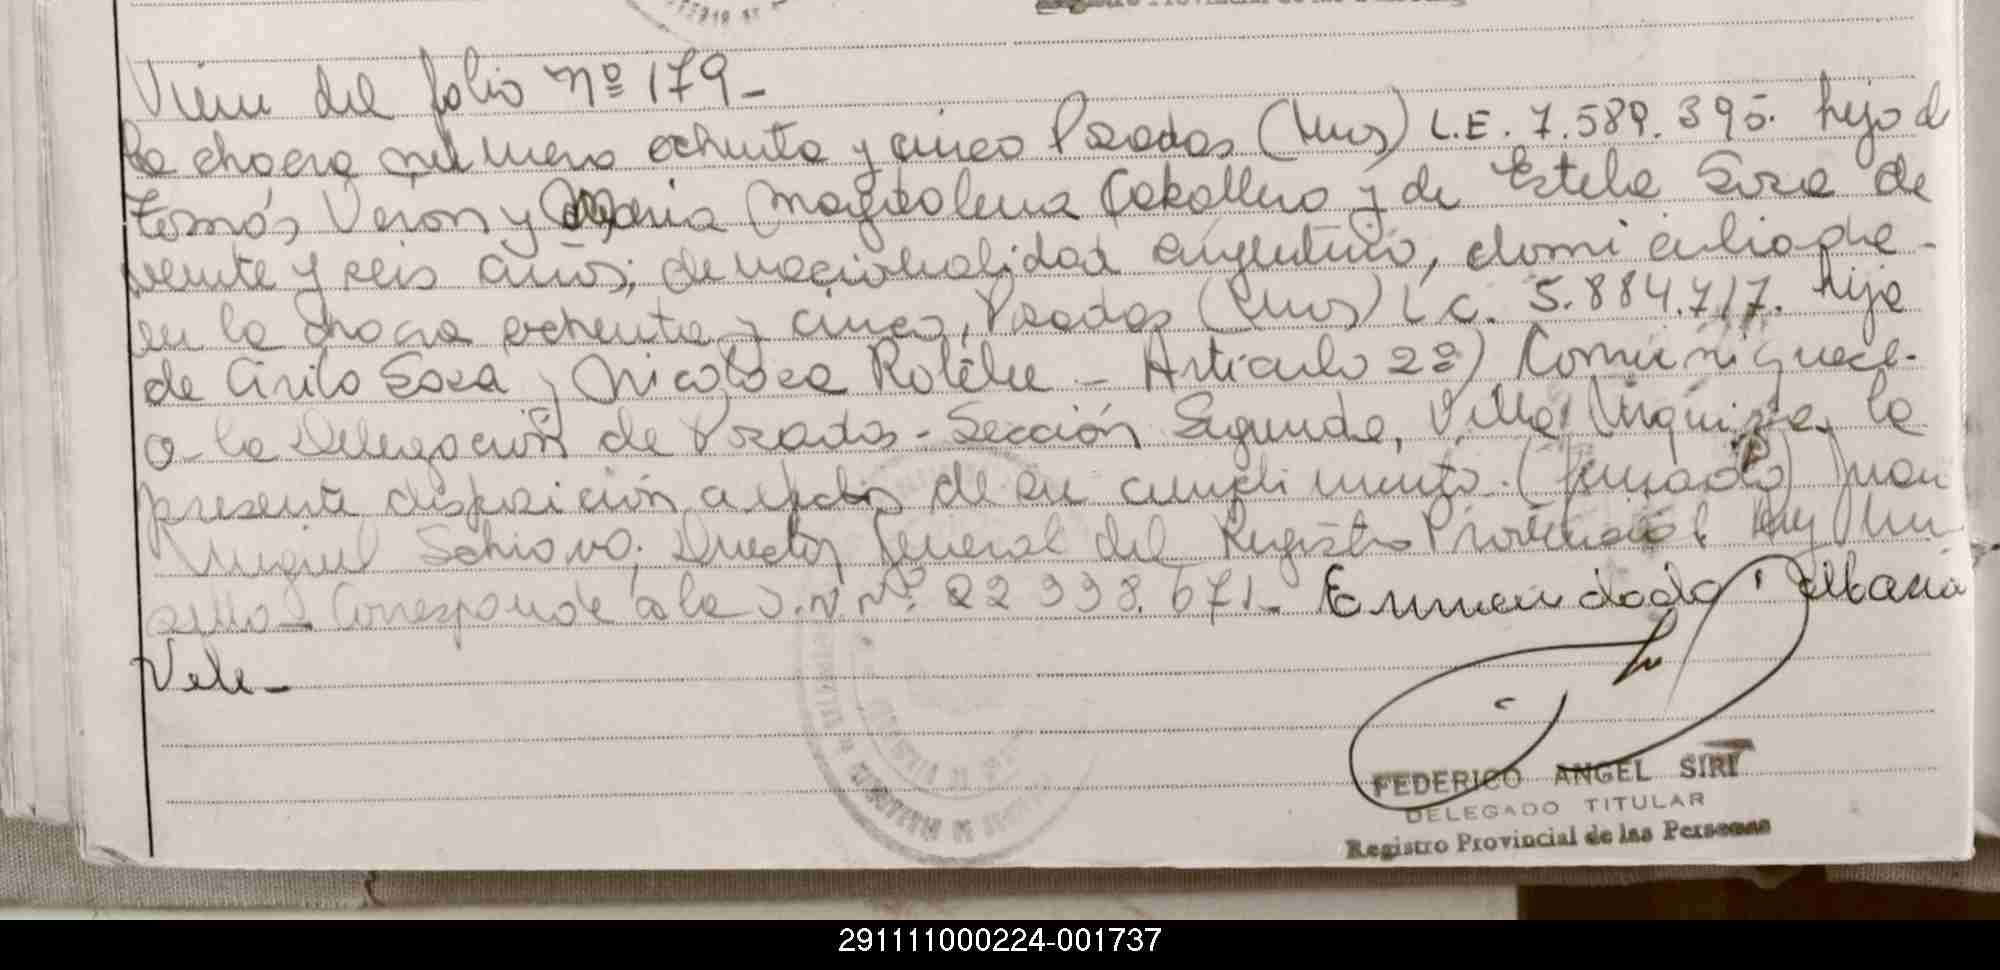 Viene del folio nº 179-
la chacra número ochenta y cinco Posadas (Mnes) L.E. 7.589.395. hijo de
Tomás Verón y María Magdalena Caballero y de Estela Sosa de
veinte y seis años; de nacionalidad argentina, domiciliada
en la chacra ochenta y cinco, Posadas (Mnes) L.C. 5.884.717. hija
de Cirilo Sosa y Nicolasa Rolón - Artículo 2º) Comuníquese
a la Delegación de Posadas - Sección Segunda, Villa Urquiza, la
presente disposición a efectos de su cumplimiento. (firmado) Juan
Miguel Schiavo, Director General del Registro Provincial. Hay un
sello - Corresponde a la D.N. Nº. 22.998.671- Enmendado: María
Vale-
FEDERICO ANGEL SIRI
DELEGADO TITULAR
Registro Provincial de las Personas
291111000224-001737